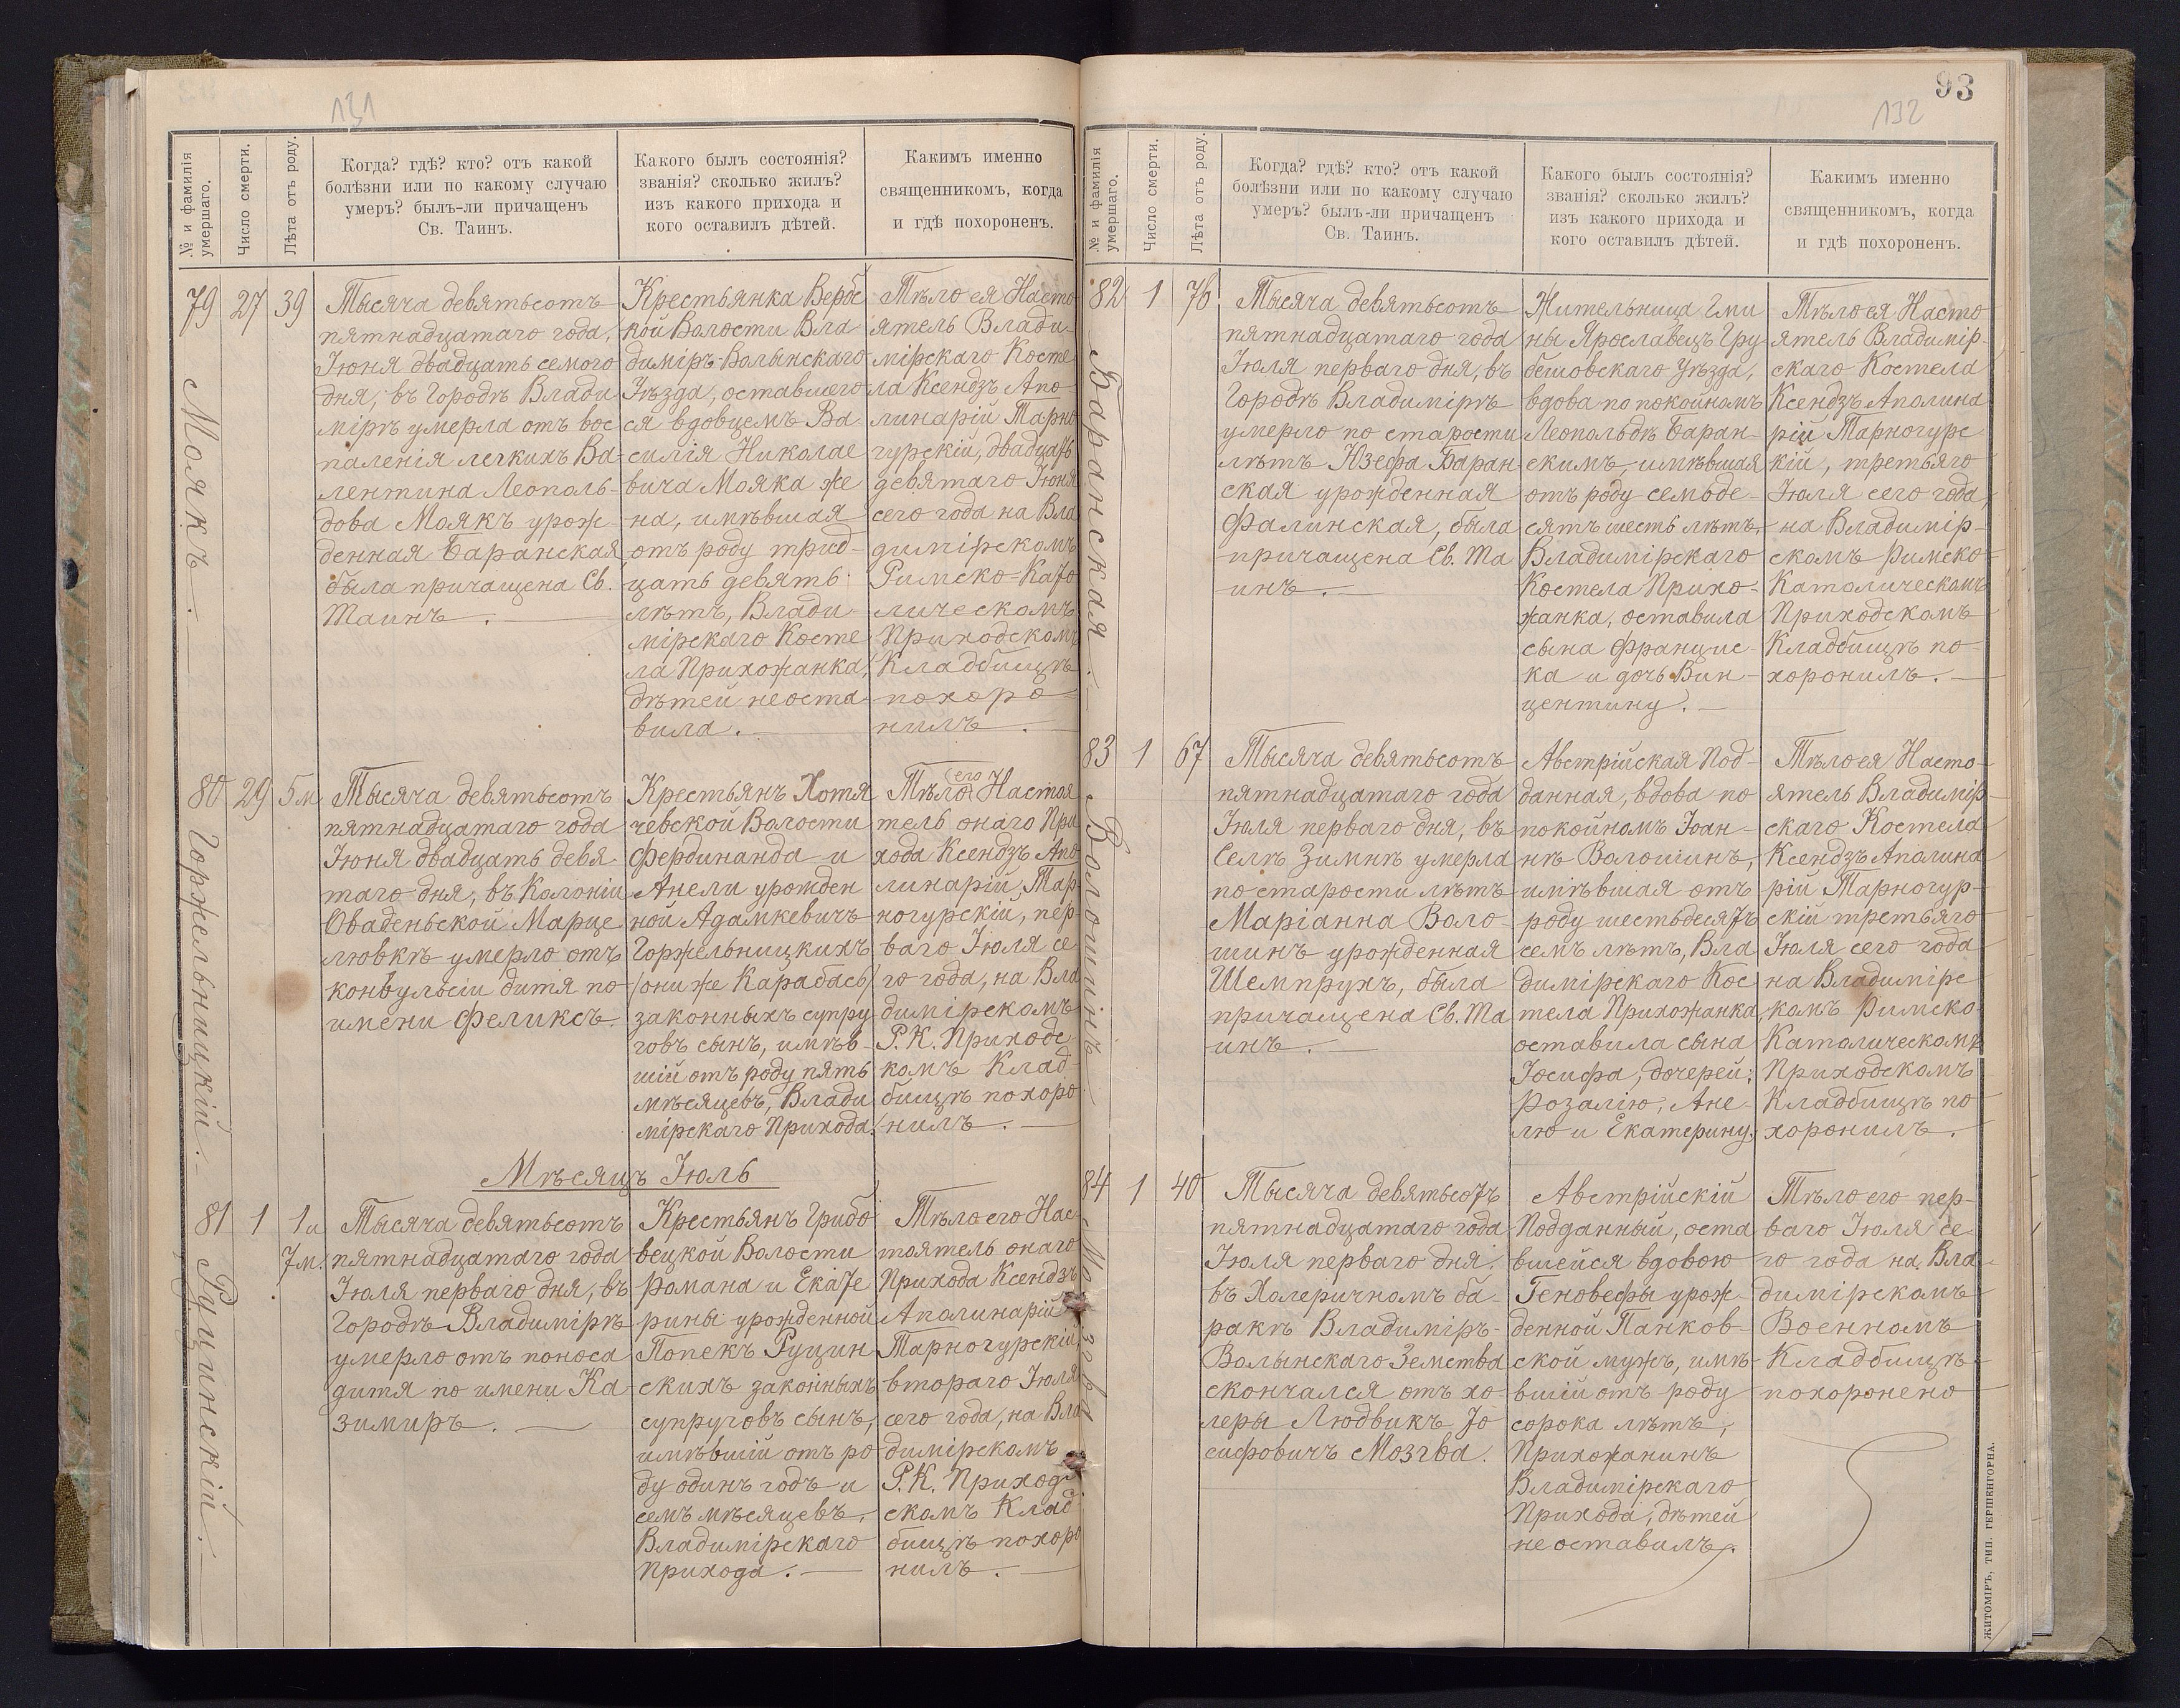 131
№ и фамилія
умершаго.
Число смерти.
Лѣта отъ роду.
Когда? гдѣ? кто? отъ какой
болѣзни или по какому случаю
умеръ? былъ-ли причащенъ
Св. Таинъ.
Какого былъ состоянія?
званія? сколько жилъ?
изъ какого прихода и
кого оставилъ дѣтей.
Какимъ именно
священникомъ, когда
и гдѣ похороненъ.
79
Моякъ.
27
39
Тысяча девятьсотъ
пятнадцатаго года,
Іюня двадцать семого
дня, въ Городѣ Влади
мірѣ умерла отъ вос
паленія легкихъ Ва-
лентина Леополь-
дова Моякъ урож-
денная Баранская
была причащена Св.
Таинъ.
Крестьянка Верб
кой Волости Вла
диміръ-Волынскаго
Уѣзда, оставшего
ся вдовцемъ Ва-
силія Николае
вича Мояка же
на, имѣвшая
отъ роду трид-
цать девять
лѣтъ, Влади-
мірскаго Косте
ла Прихожанка,
дѣтей не оста-
вила.
Тѣло ея Насто
ятель Влади-
мірскаго Косте
ла Ксендзъ Апо
линарій Тарно
гурскій, двадцать
девятаго Іюня
сего года на Вла
димірскомъ
Римско-Като
лическомъ
Приходскомъ
Кладбищѣ
похоро=
нилъ.
80
Горжельницкій.
29
5 м
Тысяча девятьсотъ
пятнадцатаго года
Іюня двадцать девя
таго дня, въ Колоніи
Оваденьской Марце
левкѣ умерло отъ
конвульсіи дитя по
имени Феликсъ.
Крестьянъ Хотя
чевской Волости
Фердинанда и
Анели урожден
ной Адамкевичъ
Горжельницкихъ
/они же Карабась/
законныхъ супру
говъ сынъ, имѣв-
шій отъ роду пять
мѣсяцевъ, Влади
мірскаго Прихода.
Тѣло его Настоя
тель онаго При
хода Ксендзъ Апо
линарій Тар-
ногурскій, пер
ваго Іюля се
го года, на Вла
димірскомъ
Р. К. Приходс
комъ Клад-
бищѣ похоро
нилъ.
Мѣсяцъ Іюль
81
Руцинскій.
1
1 и
7 м.
Тысяча девятьсотъ
пятнадцатаго года
Іюля перваго дня, въ
Городѣ Владимірѣ
умерло отъ поноса
дитя по имени Ка-
зимиръ.
Крестьянъ Грибо
вецкой Волости
Романа и Екате
рины урожденной
Попекъ Руцин
скихъ законныхъ
супруговъ сынъ,
имѣвшій отъ ро
ду одинъ годъ и
семъ мѣсяцевъ,
Владимірскаго
Прихода.
Тѣло его Нас-
тоятель онаго
Прихода Ксендзъ
Аполинарій
Тарногурскій
втораго Іюля
сего года, на Вла
димірскомъ
Р. К. Приход
скомъ Клад-
бищѣ похоро
нилъ.
93
132
№ и фамилія
умершаго.
Число смерти.
Лѣта отъ роду.
Когда? гдѣ? кто? отъ какой
болѣзни или по какому случаю
умеръ? былъ-ли причащенъ
Св. Таинъ.
Какого былъ состоянія?
званія? сколько жилъ?
изъ какого прихода и
кого оставилъ дѣтей.
Какимъ именно
священникомъ, когда
и гдѣ похороненъ.
82
Баранская.
1
76
Тысяча девятьсотъ
пятнадцатаго года
Іюля перваго дня, въ
Городѣ Владимірѣ
умерло по старости
лѣтъ Юзефа Баран
ская урожденная
Фалинская, была
причащена Св. Та
инъ.
Жительница Гми
ны Ярославецъ Гру
бешовскаго Уѣзда,
вдова по покойномъ
Леопольдѣ Баран-
скимъ, имѣвшая
отъ роду семьде-
сятъ шесть лѣтъ,
Владимірскаго
Костела Прихо-
жанка, оставила
сына Францис-
ка и дочь Вин-
центину.
Тѣло ея Насто
ятель Владимір-
скаго Костела
Ксендзъ Аполина
рій Тарногурс
кій, третьяго
Іюля сего года,
на Владимір-
скомъ Римско-
Католическомъ
Приходскомъ
Кладбищѣ по-
хоронилъ.
83
Волошинъ
1
67
Тысяча девятьсотъ
пятнадцатаго года
Іюля перваго дня, въ
Селѣ Зимнѣ умерла
по старости лѣтъ
Маріанна Воло-
шинъ урожденная
Шемпрухъ, была
причащена Св. Та
инъ.
Австрійская Под-
данная, вдова по
покойномъ Іоан-
нѣ Волошинъ,
имѣвшая отъ
роду шестьдесятъ
семъ лѣтъ, Вла
димірскаго Кос
тела Прихожанка,
оставила сына
Іосифа, дочерей:
Розалію, Ане-
лю и Екатерину.
Тѣло ея Насто-
ятель Владимір-
скаго Костела
Ксендзъ Аполина
рій Тарногур-
скій третьяго
Іюля сего года
на Владимірс
комъ Римско-
Католическомъ
Приходскомъ
Кладбищѣ по
хоронилъ.
84
Мозгва
1
40
Тысяча девятьсотъ
пятнадцатаго года
Іюля перваго дня,
въ Холеричномъ ба-
ракѣ Владиміръ-
Волынскаго Земства
скончался отъ хо-
леры Людвикъ Іо
сифовичъ Мозгва.
Австрійскій
Подданный, оста
вшейся вдовою
Геновефы урож-
денной Панков-
ской мужъ, имѣ-
вшій отъ роду
сорока лѣтъ,
Прихожанинъ
Владимірскаго
Прихода, дѣтей
не оставилъ.
Тѣло его пер-
ваго Іюля се
го года на Вла
димірскомъ
Военномъ
Кладбищѣ
похоронено
ЖИТОМІРЪ, ТИП. ГЕРШЕНГОРНА.